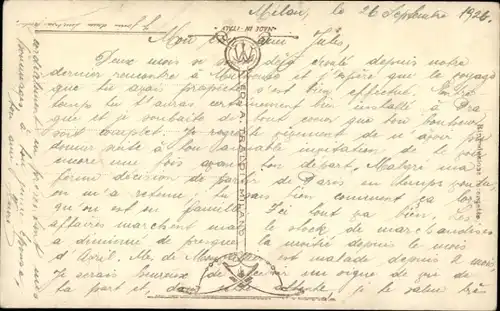 Milan, le 26 Septembre 1926
Mon cher ami Jules,
Deux mois se sont déjà écoulé depuis notre
dernier rencontre à et j'espère que le voyage
que tu avais proposé s'est bien effectué. Entre
temps tu t'auras certainement bien installé à
que et je souhaite de tout coeur que ton bonheur
soit complet. Je regrette vivement de n'avoir pu
donner suite à ton invitation, de te voir
encore une fois avant ton départ. Malgré ma
ferme décision de partir de Paris en temps voulu
on m'a retenu, tu sais bien comment ça
qu'on est en famille. Ici tout va bien, les
affaires marchent mais le stock de marchandises
a diminué de presque la moitié depuis le mois
d'Avril. Mr. de est malade depuis 2 mois
Je serais heureux de recevoir un signe de vie de
ta part et, dans cette attente, je te salue très
cordialement en présentant mes
hommages à ton épouse,
ton ami
MADE IN ITALY
MILANO